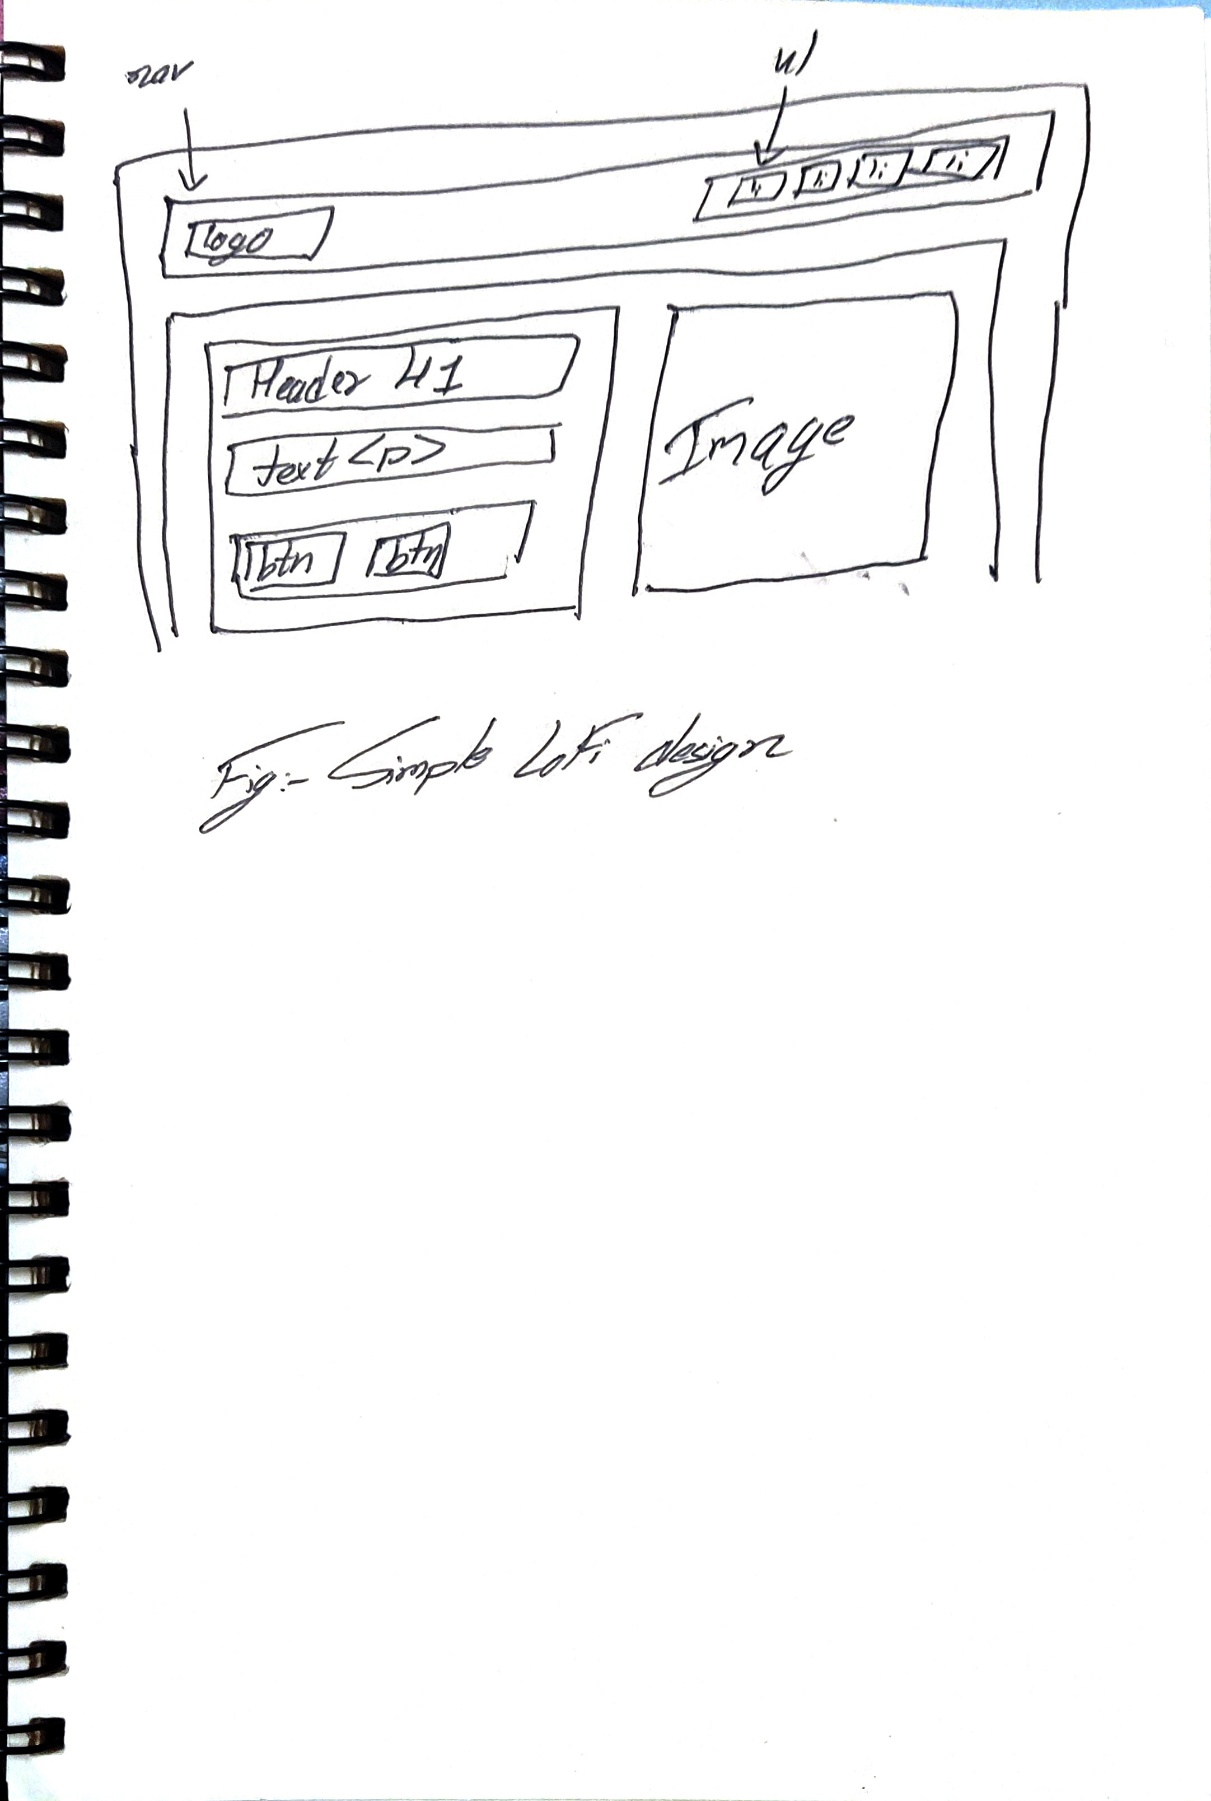 nav
ul
logo
li li li li
Header H1
text <p>
btn btn
Image
Fig:- Simple LoFi design